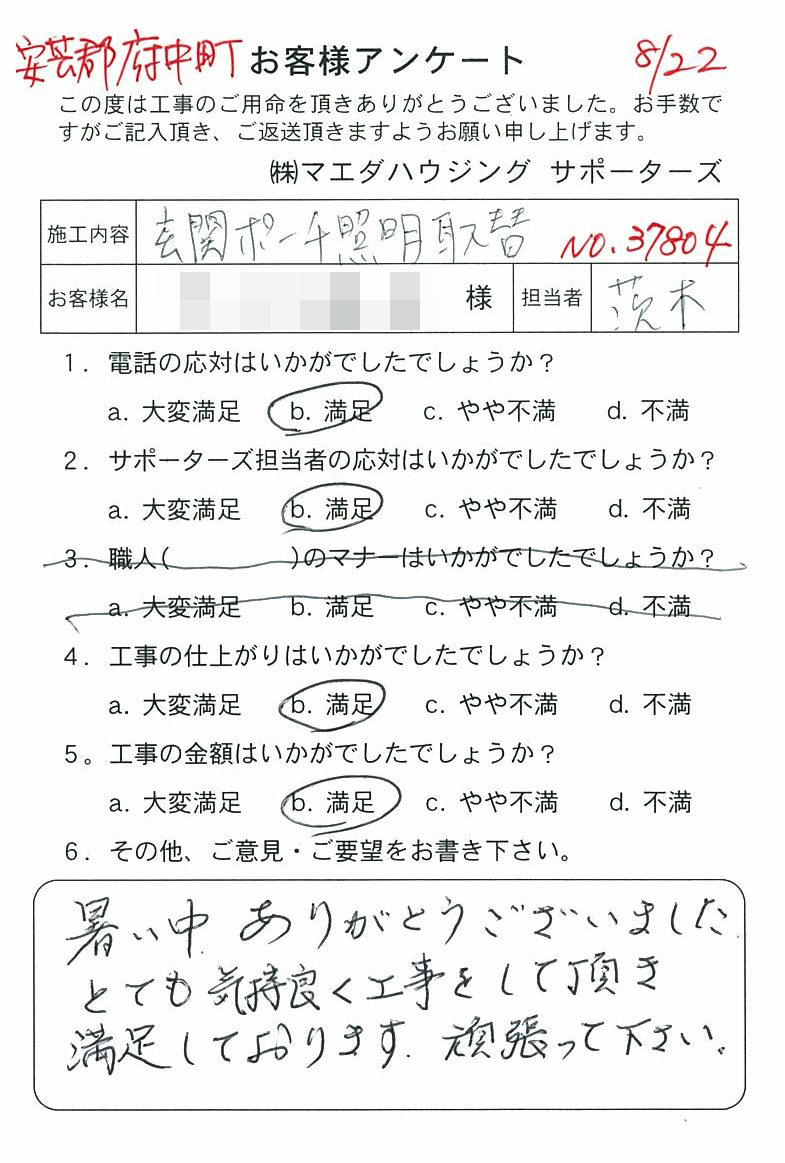 安芸郡府中町 お客様アンケート 8/22
この度は工事のご用命を頂きありがとうございました。お手数で
すがご記入頂き、ご返送頂きますようお願い申し上げます。
㈱マエダハウジング サポーターズ
施工内容 玄関ポーチ照明取替 NO.37804
お客様名 様 担当者 茨木
1. 電話の応対はいかがでしたでしょうか？
a. 大変満足 b. 満足 c. やや不満 d. 不満
2. サポーターズ担当者の応対はいかがでしたでしょうか？
a. 大変満足 b. 満足 c. やや不満 d. 不満
3. 職人( )のマナーはいかがでしたでしょうか？
a. 大変満足 b. 満足 c. やや不満 d. 不満
4. 工事の仕上がりはいかがでしたでしょうか？
a. 大変満足 b. 満足 c. やや不満 d. 不満
5。工事の金額はいかがでしたでしょうか？
a. 大変満足 b. 満足 c. やや不満 d. 不満
6. その他、ご意見・ご要望をお書き下さい。
暑い中 ありがとうございました
とても気持良く工事をして頂き
満足しております. 頑張って下さい。